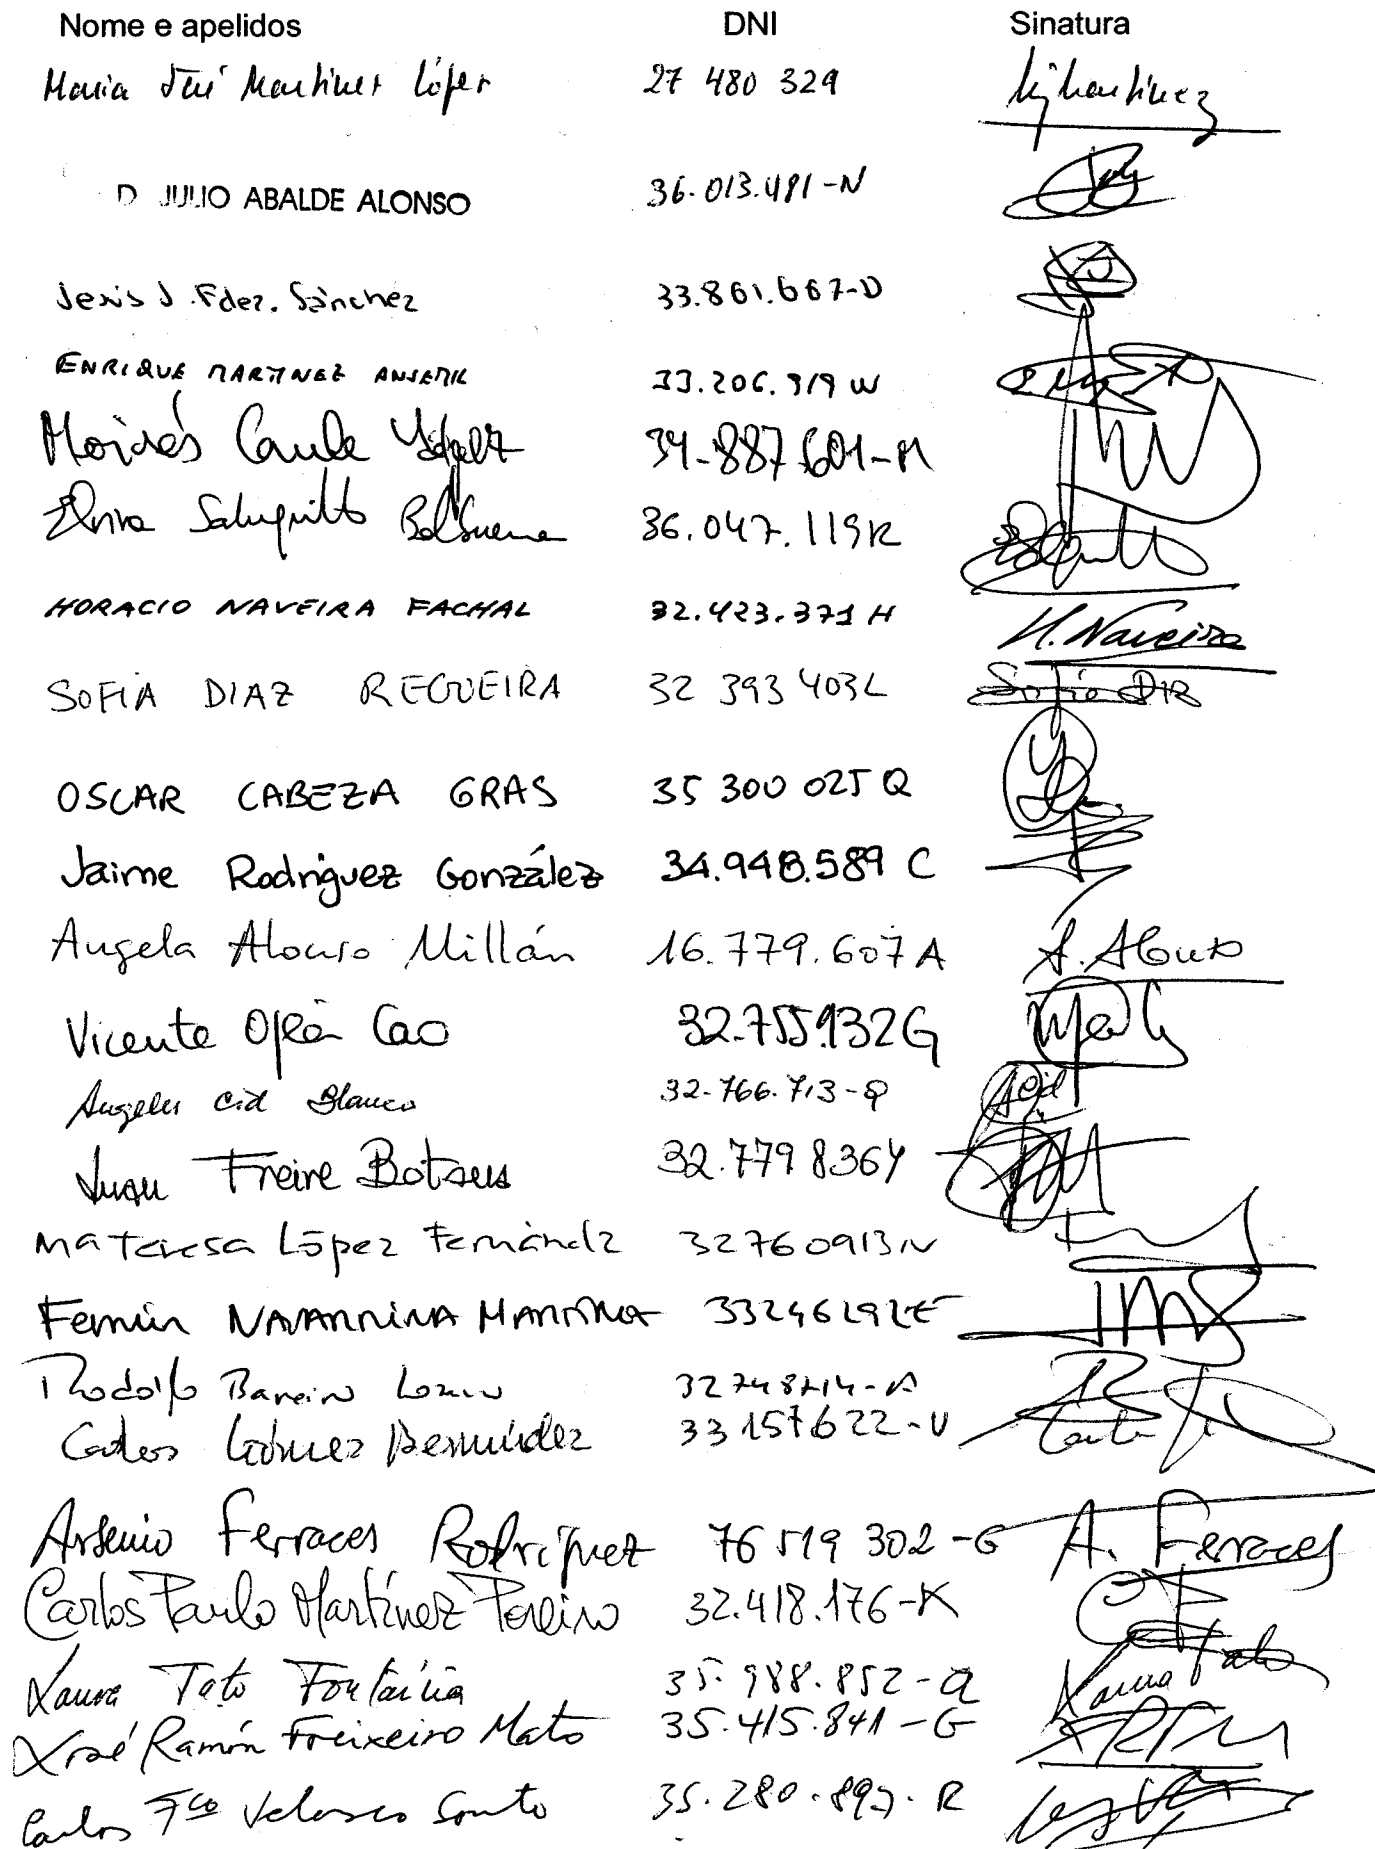 Nome e apelidos DNI Sinatura
Maria José Martinez López 27 480 329 Mj Martinez
D JULIO ABALDE ALONSO 36.013.481-N
Jesús J. Fdez. Sánchez 33.861.667-D
ENRIQUE MARTINEZ ANSEMIL 33.206.919 W
Moisés Canle 34-887.601-M
Elvira 36.047.119R
HORACIO NAVEIRA FACHAL 32.423.371 H H. Naveira
SOFIA DIAZ REGUEIRA 32 393 403L Sofia DR
OSCAR CABEZA GRAS 35 300 025 Q
Jaime Rodríguez González 34.948.589 C
Angela Alonso Millán 16.779.607A A. Alonso
Vicente Cao 32.755.932G
Angeles Cid Blanco 32-766.713-Q ACid
Juan Freire Botana 32.779836Y
Mª Teresa López Fernández 32760913N
Fermín NAVARRINA MARTINEZ 33246292E
Rodolfo Barreiro Lozano
Carlos Gómez Bermúdez 33157622-V
Arsenio Ferraces Rodríguez 76 519 302-G A. Ferraces
Carlos Paulo Martínez Pereiro 32.418.176-K
Laura Tato Fontaíña 35.988.852-Q Laura Tato
Xosé Ramón Freixeiro Mato 35.415.841-G XRFM
Carlos Fco Velasco Souto 35.280.897.R